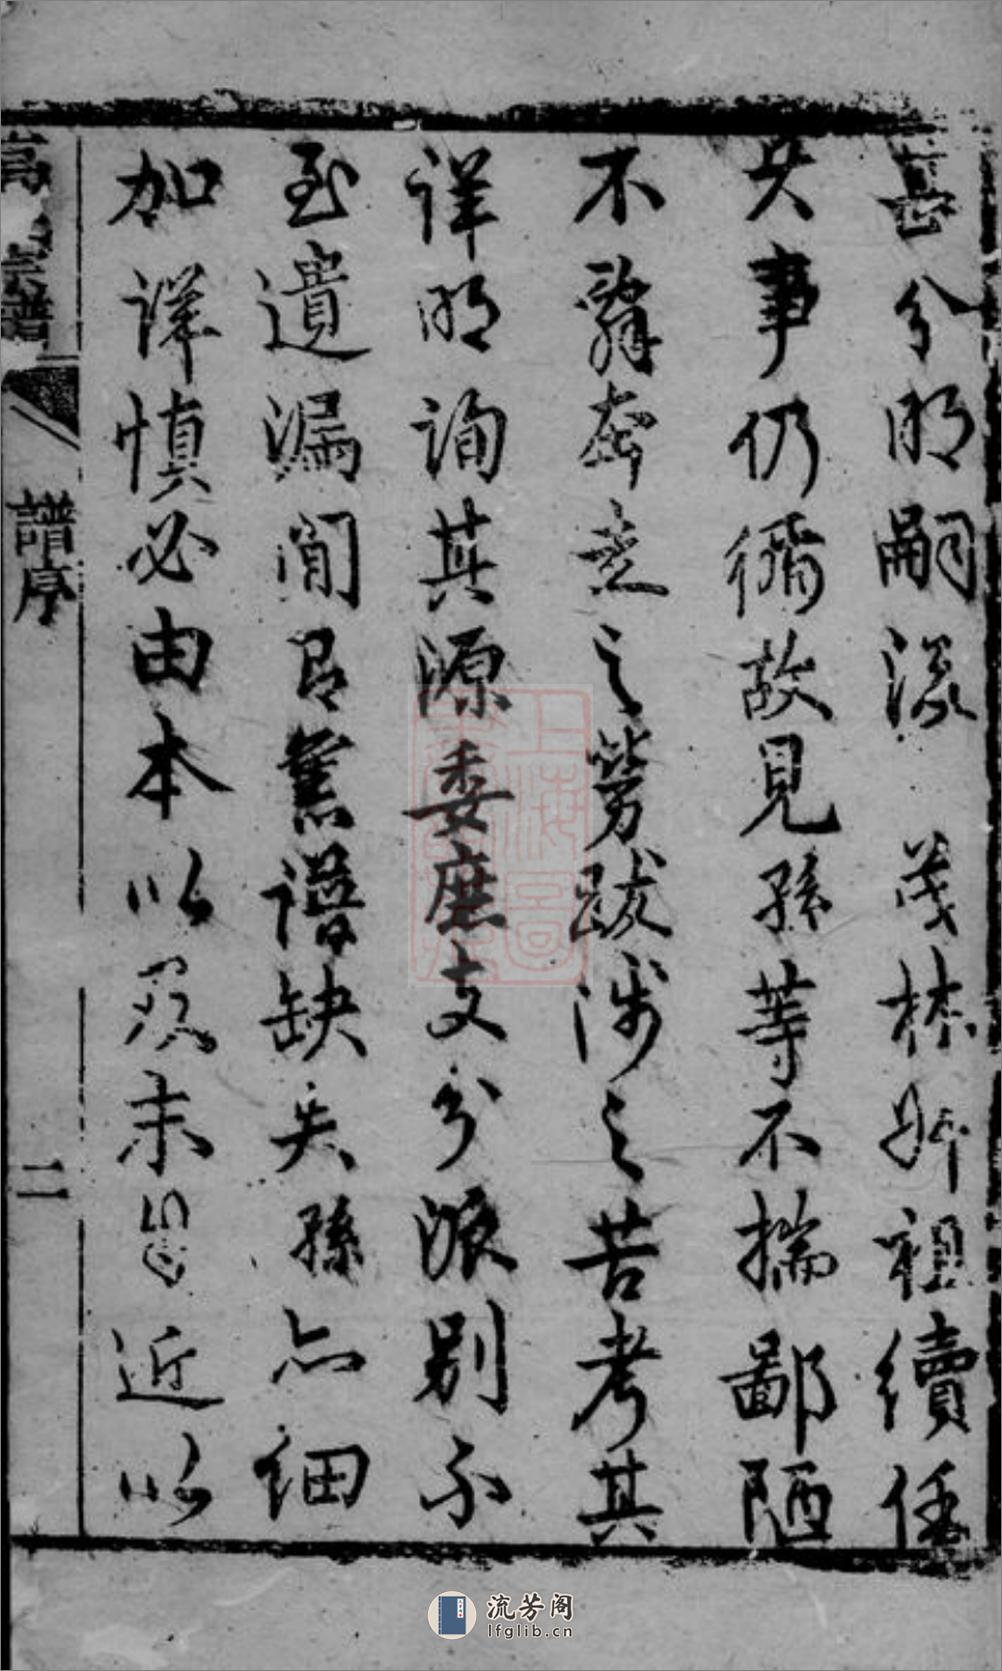 甚分明嗣後茂林叔祖續任
其事仍循故見孫等不揣鄙陋
不辭奔走之勞跋涉之苦考其
詳明詢其源委庶支分派别不
至遺漏間有舊譜缺失孫亦細
加詳慎必由本以及末邇近以
宗譜
譜序
二
上海圖
流芳阁
lfglib.cn